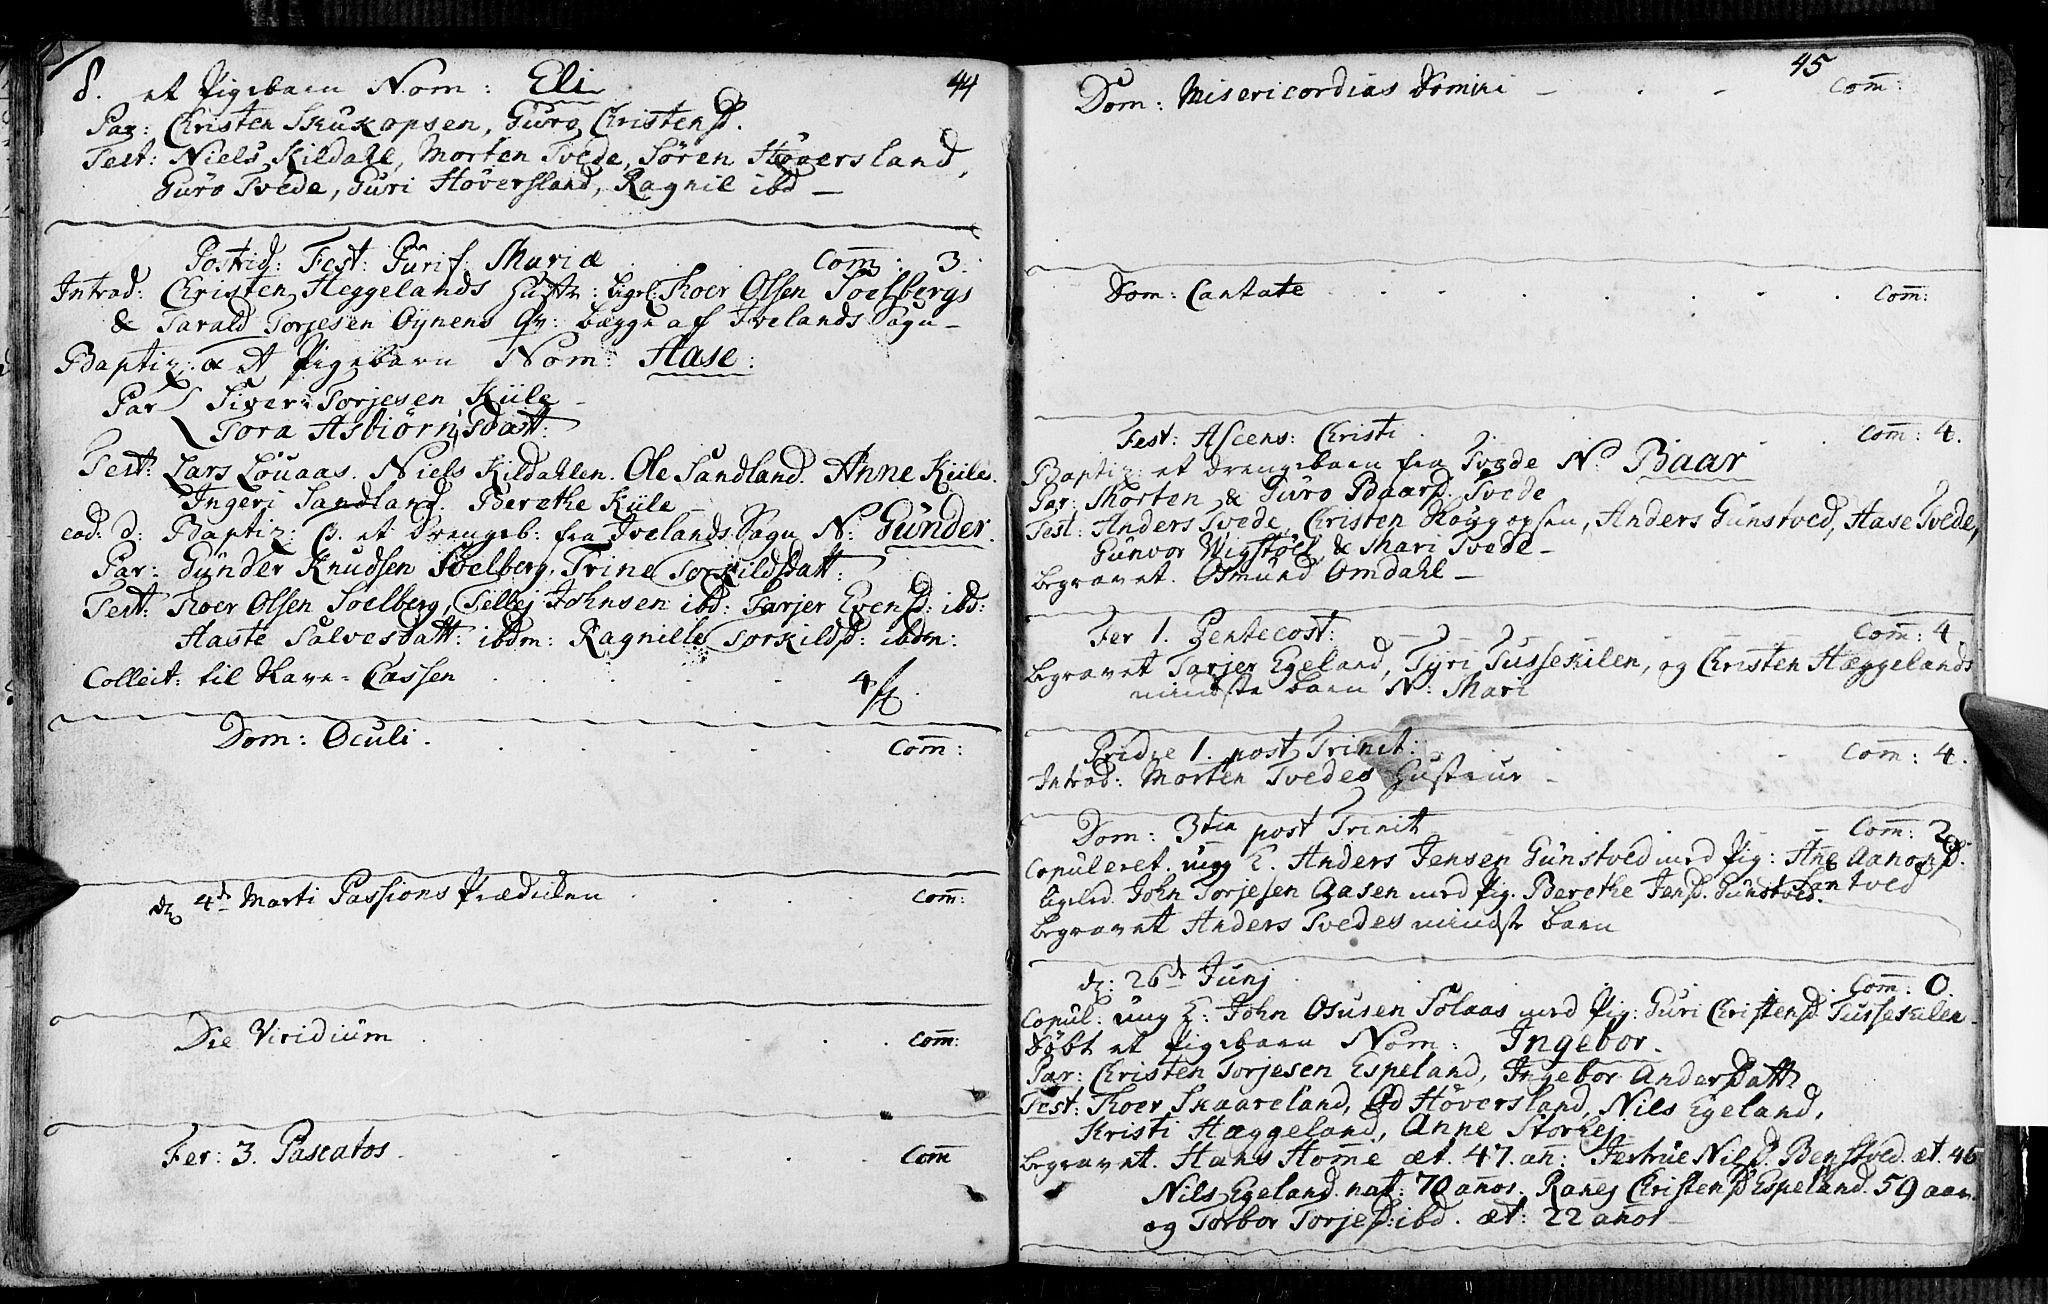 44
8. et Pigebarn Nom: Eli
Par: Christen Skukopsen, Guro Christensd.
Test: Niels Kildahl, Morten Tvede, Sören Höversland,
Guro Tvede, Guri Höversland, Ragnil ibd —
Postrid: Fest: Purif. Mariæ Com̄: 3.
Introd: Christen Heggelands Hustr: ligel: Roer Olsen Soelbergs
& Tarald Torjesen Oÿnens Qv: begge af Ivelands Sogn —
Baptiz: α et Pigebarn Nom: Aase:
Par Siver Torjesen Kiile
Tora Asbiörnsdatt:
Test: Lars Louaas. Niels Kildahlen. Ole Sandland. Anne Kiile.
Ingeri Sandland. Berethe Kiile
eod: d: Baptiz: β. et Drengeb: fra Ivelands Sogn N: Gunder.
Par: Gunder Knudsen Soelberg, Trine Torkildsdatt:
Test: Roer Olsen Soelberg, Tellej Johnsen ibd: Tarjer Evensd: ibd:
Aaste Salvesdatt: ibdm: Ragnille Torkildsd: ibdm:
Collect: til Cassen 4 ß.
Dom: Oculi. Com̄:
d. 4de Marti Passions Prædiken Com̄:
Die Viridium Com̄:
Fer: 3. Pascatos Com̄
45
Dom: Misericordias Domini Com̄:
Dom: Cantate Com̄:
Fest: Ascens: Christi Com̄: 4.
Baptiz: et Drengebarn fra Tvede N: Baar
Par: Morten & Guro Baarsd. Tvede
Test: Anders Tvede, Christen Skuggopsen, Anders Gunstved, Aase Tvede,
Gunvor Wigstöel, & Mari Tvede —
begravet. Osmund Omdahl —
Fer 1. Pentecost: Com̄: 4.
begravet Tarjer Egeland, Tyri Tussekilen, og Christen Hæggelands
mindste barn N: Mari
Pridie 1. post Trinit: Com̄: 4.
Introd: Morten Tvedes Hustrue
Dom: 3tia post Trinit Com̄: 2
Copuleret. ung K. Anders Jensen Gunstved med Pig: Ane Aanonsd:
Santved
ligeled. John Torjesen Aasen med Pig. Berethe Jensd. Gunstved.
begravet Anders Tvedes mindste barn
d: 26de Junj Com̄: 0
Copul: ung K: John Osusen Solaas med Pig: Guri Christensd Tussekilen
Döbt et Pigebarn Nom: Ingebor.
Par: Christen Torjesen Espeland, Ingebor Andersdatt
Test: Roer Skaareland, Od Höversland, Nils Egeland,
Kristi Hæggeland, Anne Storhej
begravet. Hans Home æt. 47. an: Jertrue Nilsd. Benstved. æt. 46
Nils Egeland nat: 70 años. Ranej Christensd Espeland. 59 aar.
og Torbor Torjesd: ibd. æt: 22 anos —